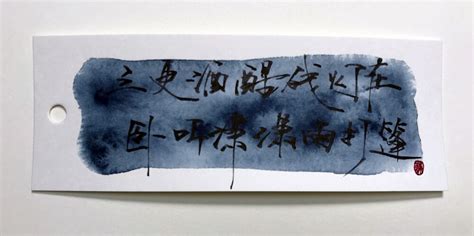 三更酒醒残灯在
卧听潇潇雨打篷